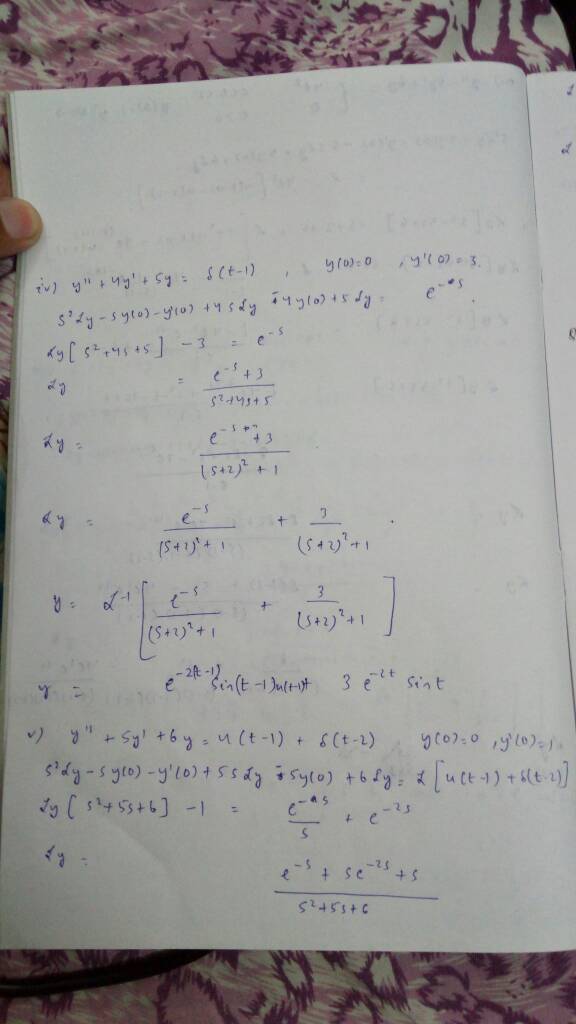 iv) y'' + 4y' + 5y = δ(t-1) , y(0)=0 , y'(0)=3.
s²ℒy - sy(0) - y'(0) + 4sℒy - 4y(0) + 5ℒy = e^-s
ℒy[s²+4s+5] - 3 = e^-s
ℒy = (e^-s + 3)/(s²+4s+5)
ℒy = (e^-s + 3)/((s+2)²+1)
ℒy = e^-s/((s+2)²+1) + 3/((s+2)²+1) .
y = ℒ^-1 [e^-s/((s+2)²+1) + 3/((s+2)²+1)]
y = e^-2(t-1) sin(t-1)u(t-1)+ 3 e^-2t sin t
v) y'' + 5y' + 6y = u(t-1) + δ(t-2) y(0)=0 , y'(0)=1
s²ℒy - sy(0) - y'(0) + 5sℒy - 5y(0) + 6ℒy = ℒ[u(t-1) + δ(t-2)]
ℒy[s²+5s+6] - 1 = e^-s/s + e^-2s
ℒy = (e^-s + se^-2s + s)/(s²+5s+6)